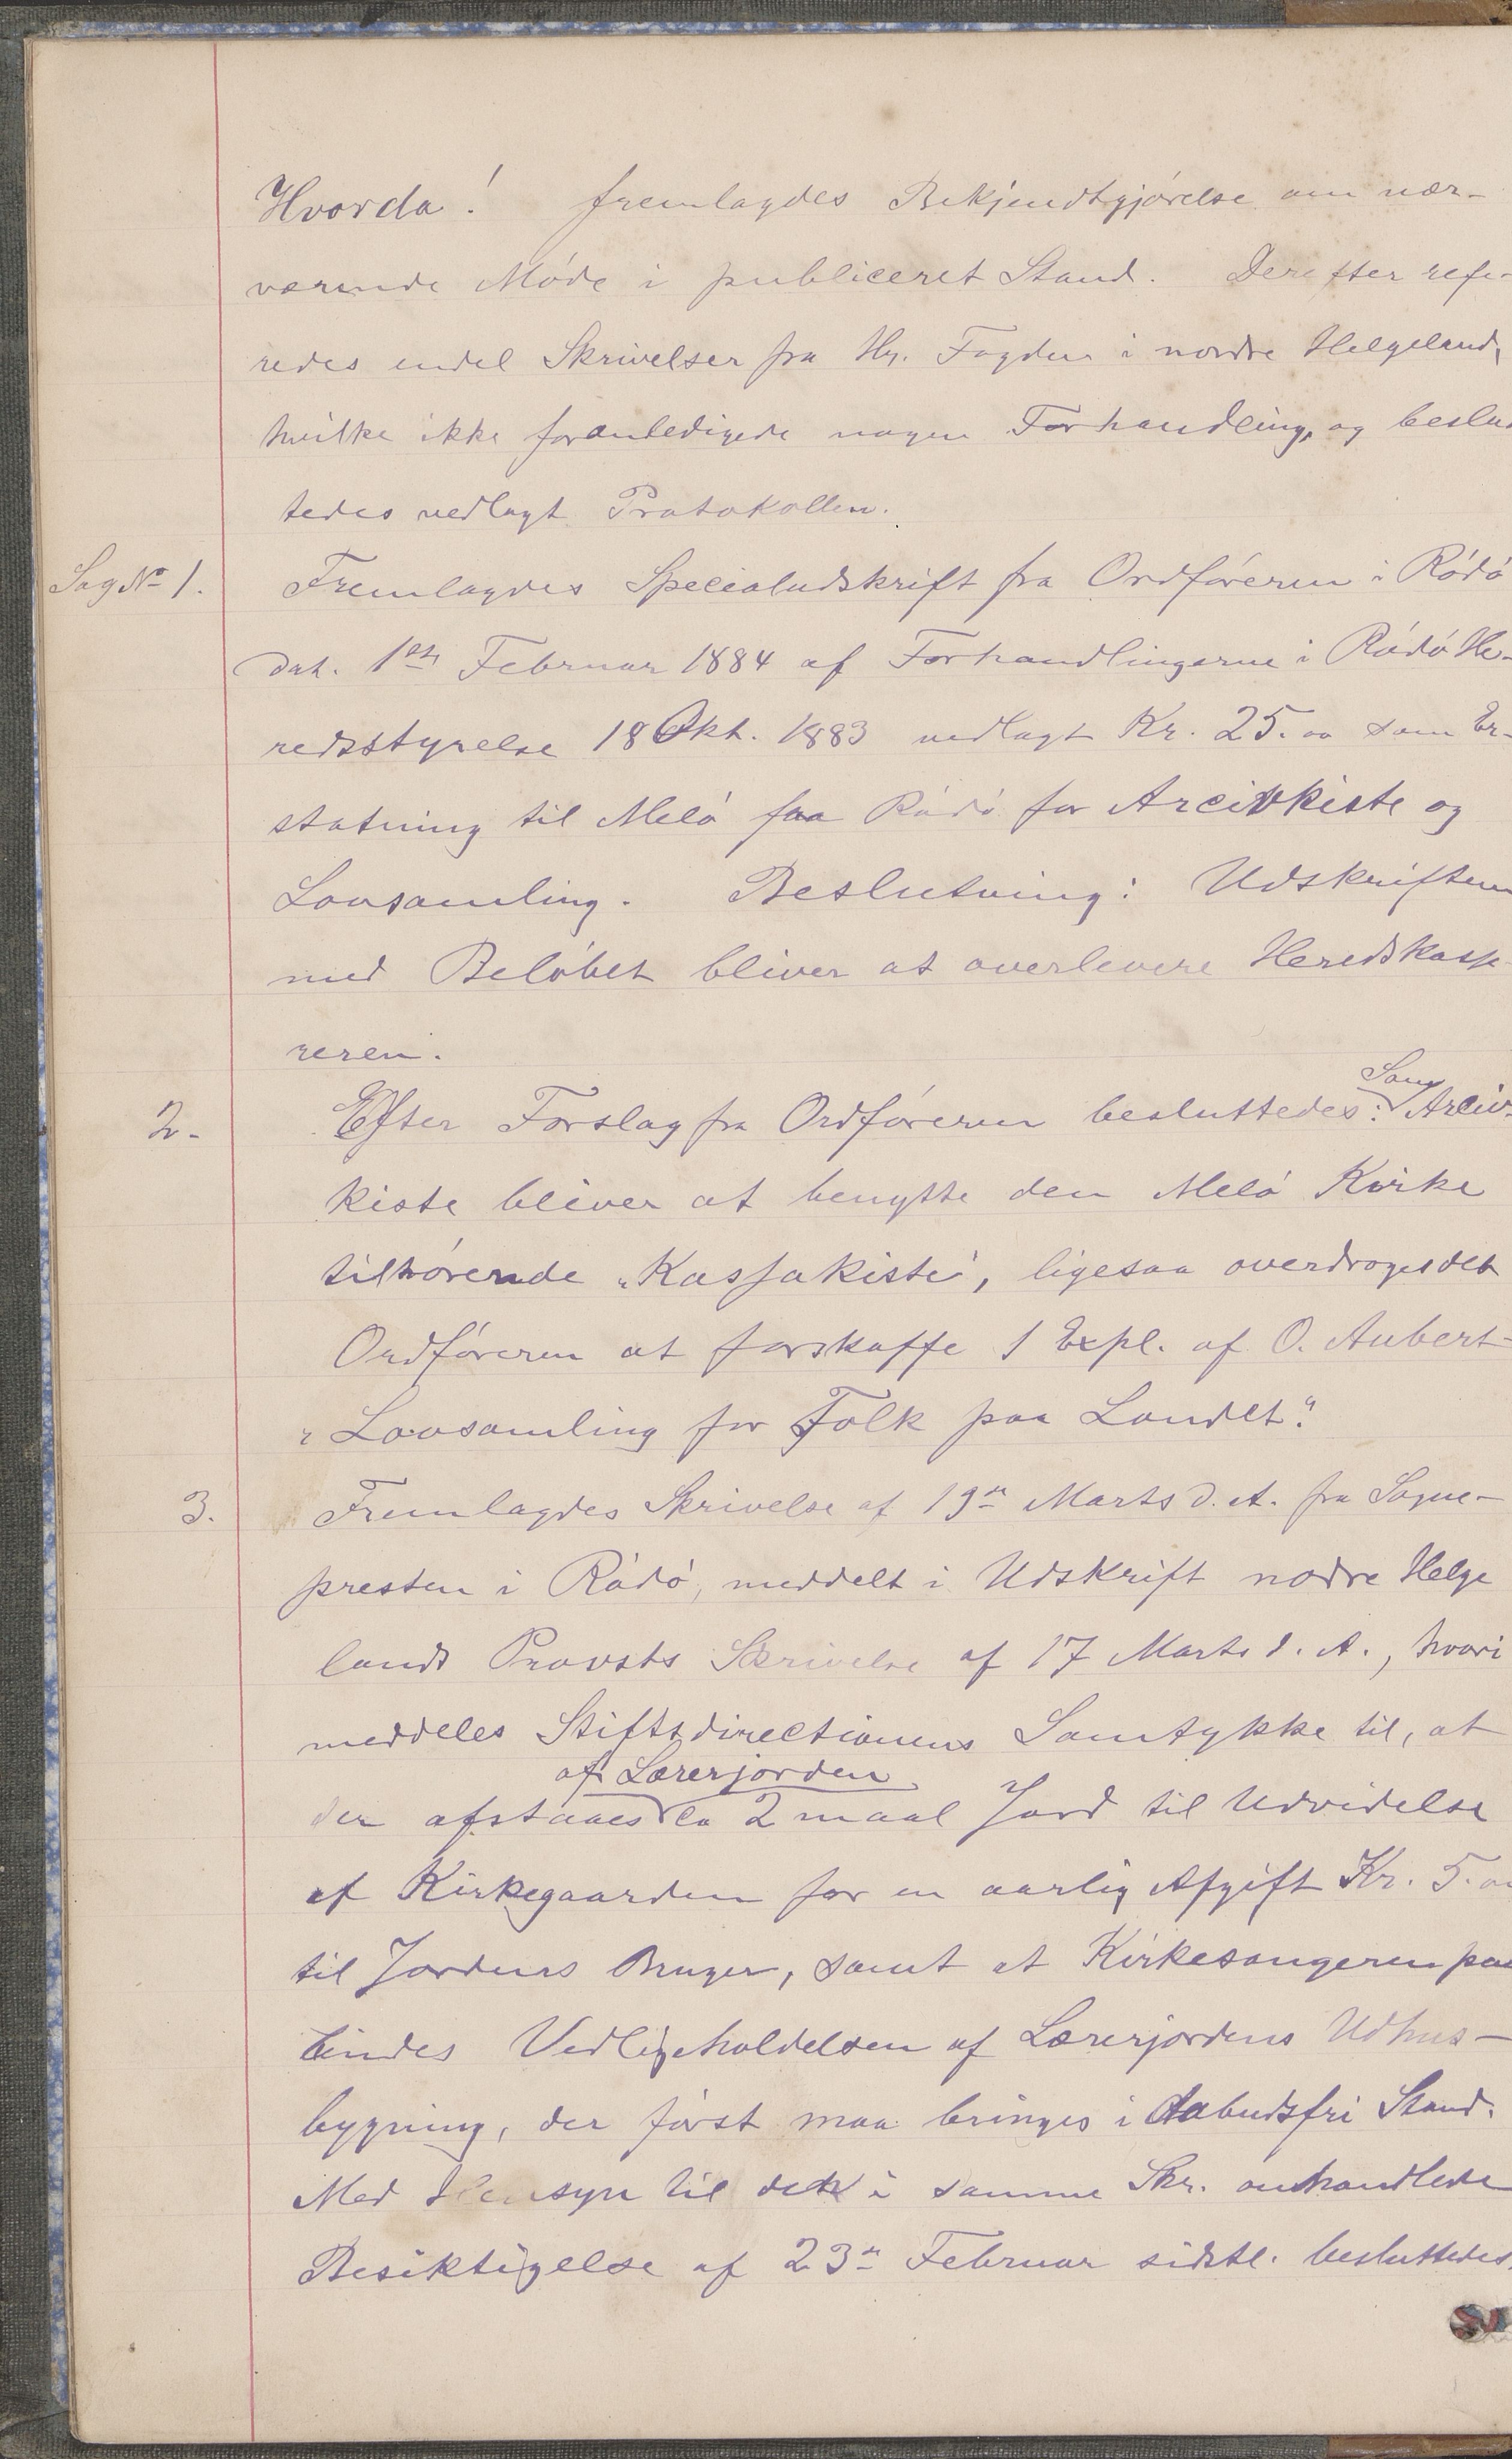 Hvorda! fremlagdes Bekjendtgjórelse om nær-
værende Móde i publiceret Stand. Derefter refe-
redes endel Skrivelser fra Hr. Fogden i nordre Helgeland,
hvilke ikke foranledigede nogen Forhandling, og beslut
tedes vedlagt Protokollen.
Sag No 1. Fremlagdes Specialudskrift fra Ordfóreren i Ródó
dat. 1ste Februar 1884 af Forhandlingerne i Ródó He-
redsstyrelse 18 Okt. 1883 vedlagt Kr. 25.00 som Er-
statning til Meló fra Ródó for Arcivkiste og
Lovsamling. Beslutning: Udskriften
med Belóbet bliver at overlevere Heredskasse
reren.
2. Efter Forslag fra Ordfóreren besluttedes: Som Arciv-
kiste bliver at benytte den Meló Kirke
tilhórende „Kassakiste", ligesaa overdroges det
Ordfóreren at forskaffe 1 Expl. af O. Aubert
„Lovsamling for Folk paa Landet."
3. Fremlagdes Skrivelse af 19de Marts d. A. fra Sogne-
presten i Ródó, meddelt i Udskrift nodre Helge
lands Provsts Skrivelse af 17 Marts d. A., hvori
meddeles Stiftsdirectionens Samtykke til, at
af Lærerjorden
der afstaaes ca 2 maal Jord til Udvidelse
af Kirkegaarden for en aarlig Afgift Kr. 5.00
til Jordens Bruger, samt at Kirkesangeren paa
bindes Vedligeholdelsen af Lærerjordens Udhus-
bygning, der fórst maa bringes i Aabudsfri Stand.
Med Hensyn til den i samme Skr. omhandlede
Besiktigelse af 23de Februar sidstl. besluttedes.